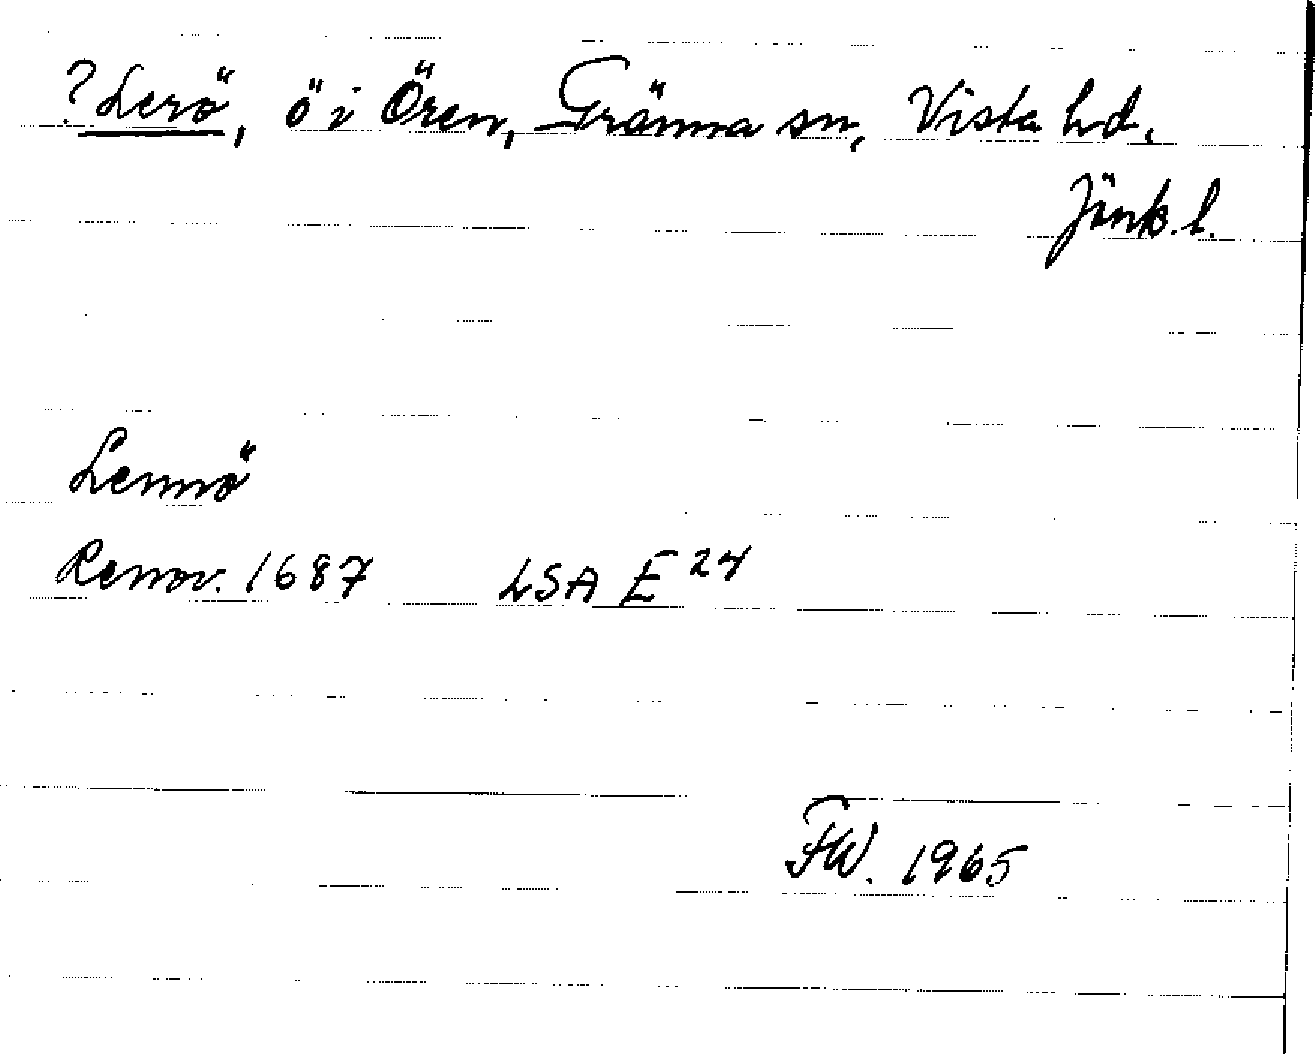 ? Lerö, ö i Ören, Gränna sn, Vista hd,
Jönk. l.
Lennö
Renov. 1687 LSA E 24
FW. 1965